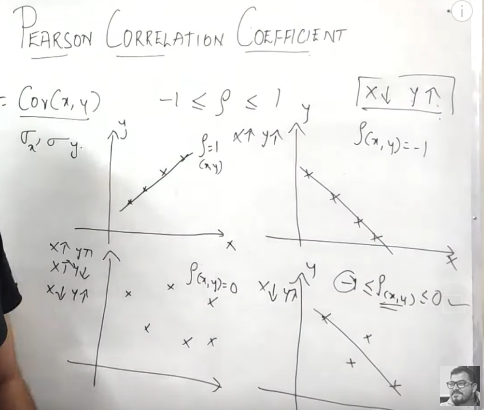 PEARSON CORRELATION COEFFICIENT
= Cov(x, y)
σx, σy.
-1 ≤ ρ ≤ 1
X↓ Y↑
y
ρ=1
(x,y)
x
X↑ Y↑
y
ρ(x,y)=-1
x
X↑ Y↑
X↑ Y↓
X↓ Y↑
ρ(x,y)=0
X↓ Y↑
y
-1 ≤ ρ(x,y) ≤ 0